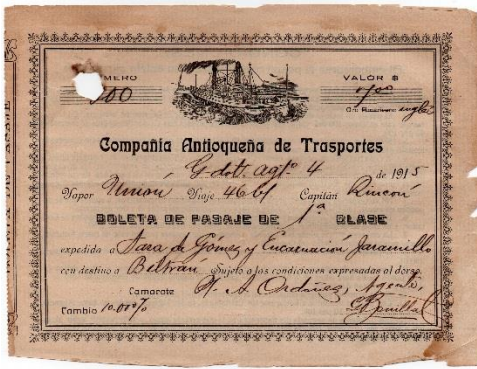 NUMERO VALOR $
100
Oro inglés
Compañia Antioqueña de Trasportes
Gdot. agto. 4 de 1915
Vapor Unión Viaje 46 Capitán Rincón
BOLETA DE PASAJE DE 1ª CLASE
expedida a Sara de Gómez y Encarnación Jaramillo
con destino a Beltrán Sujeto a las condiciones expresadas al dorso
Camarote A. Ordóñez, Agente,
Cambio 10.00%